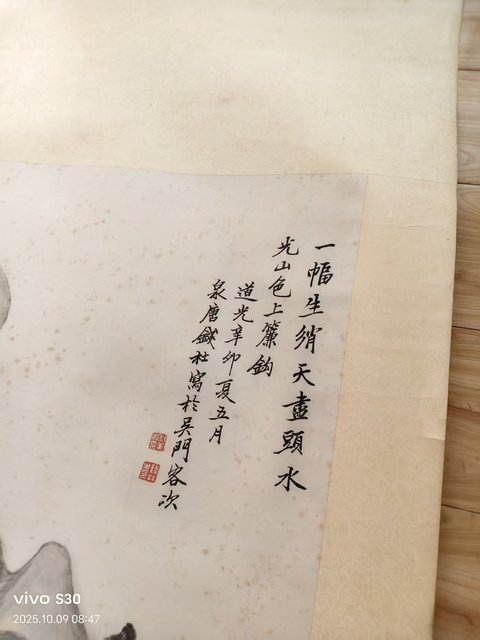 一幅生綃天盡頭水
光山色上簾鈎
道光辛卯夏五月
泉唐錢杜寫於吳門客次
vivo S30
2025.10.09 08:47